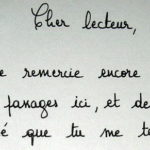 Cher lecteur,
e remercie encore
fanages ici, et de
é que tu me t